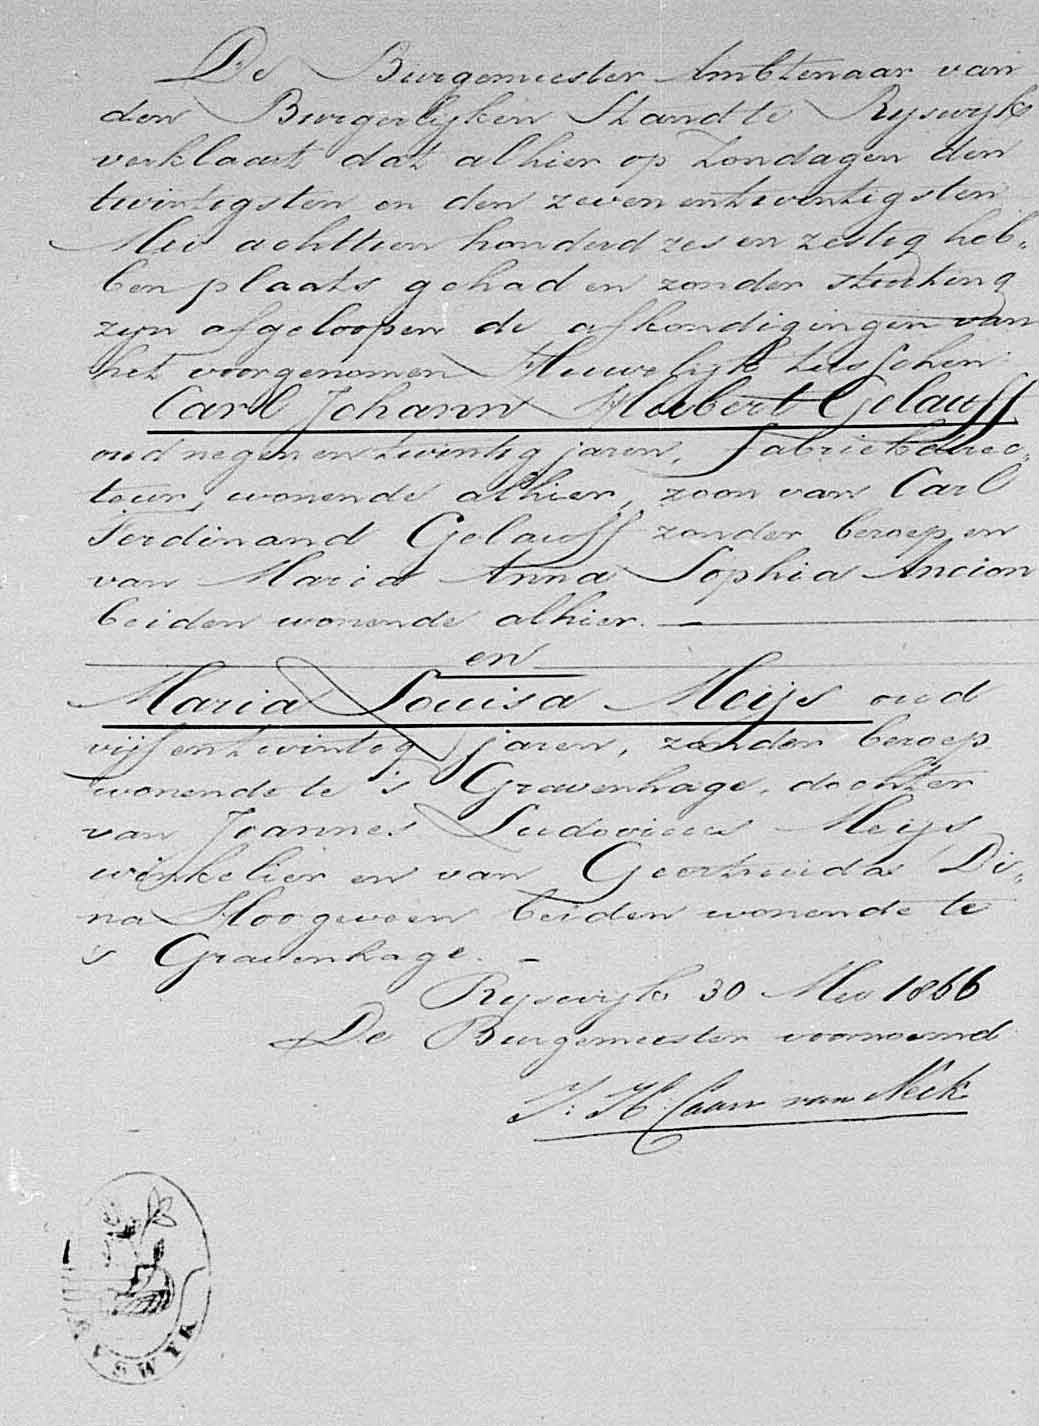 De Burgemeester Ambtenaar van
den Burgerlyken Stand te Ryswyk
verklaart dat alhier op Zondagen den
twintigsten en den zevenentwintigsten
Mei achttien honderd zes en zestig heb-
ben plaats gehad en zonder stuiting
zyn afgeloopen de afkondigingen van
het voorgenomen Huwelijk tusschen
Carl Johann Hubert Gelauff
oud negen en twintig jaren, fabriekdirec-
teur, wonende alhier, zoon van Carl
Ferdinand Gelauff zonder beroep en
van Maria Anna Sophia Ancion
beiden wonende alhier. —
en
Maria Louisa Meijs oud
vijf en twintig jaren, zonder beroep
wonende te 's Gravenhage, dochter
van Joannes Ludovicus Meijs
winkelier en van Geertruida Di-
na Hoogeveen beiden wonende te
's Gravenhage. —
Ryswyk 30 Mei 1866
De Burgemeester voornoemd
J. H. Caan van Neck